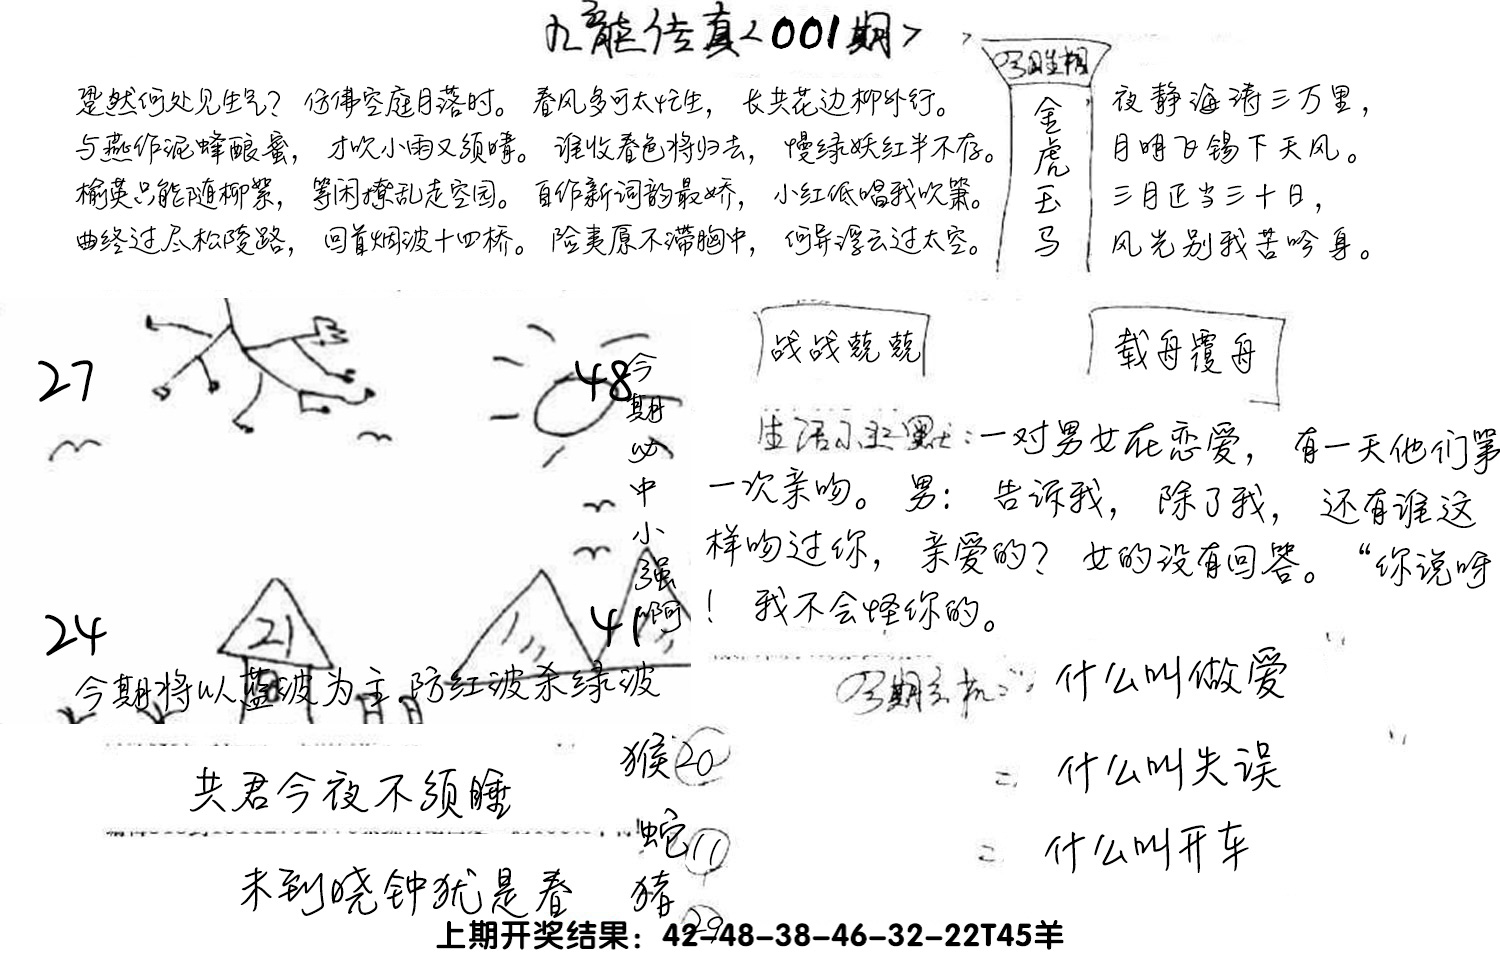 九龙传真<001期>
跫然何处见生气？仿佛空庭月落时。春风多可太忙生，长共花边柳外行。
与燕作泥蜂酿蜜，才吹小雨又须晴。谁收春色将归去，慢绿妖红半不存。
榆荚只能随柳絮，等闲撩乱走空园。自作新词韵最娇，小红低唱我吹箫。
曲终过尽松陵路，回首烟波十四桥。险夷原不滞胸中，何异浮云过太空。
金虎玉马
夜静海涛三万里，
月明飞锡下天风。
三月正当三十日，
风光别我苦吟身。
战战兢兢
载舟覆舟
27
48
今期必中小强啊
24
21
41
今期将以蓝波为主.防红波杀绿波
生活小幽默：一对男女在恋爱，有一天他们第
一次亲吻。男：告诉我，除了我，还有谁这
样吻过你，亲爱的？女的没有回答。“你说呀
！我不会怪你的。
什么叫做爱
= 什么叫失误
= 什么叫开车
共君今夜不须睡
未到晓钟犹是春
猴20
蛇11
猪29
上期开奖结果：42-48-38-46-32-22T45羊